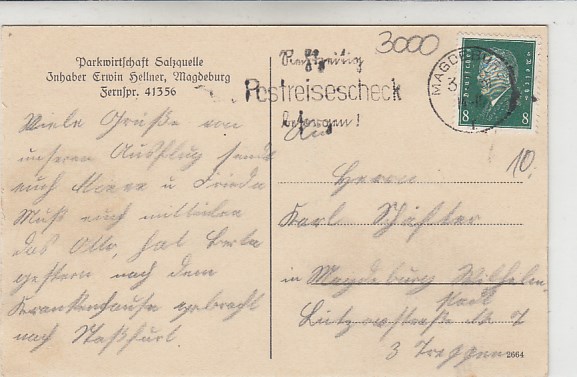 Parkwirtschaft Salzquelle
Inhaber Erwin Hellner, Magdeburg
Fernspr. 41356
Viele Grüße von
unseren Ausflug sendt
euch u Frieda
Muß euch mitteilen
das Otto, hat Berta
gestern nach dem
Krankenhause gebracht
nach Staßfurt.
3000
Rechtzeitig
Postreisescheck
besorgen!
An
MAGDEBURG
Deutsches Reich
8 8
10.
Herrn
Karl
in Magdeburg Wilhelm
stadt
Lützowstraße 7
3 Treppen
2664